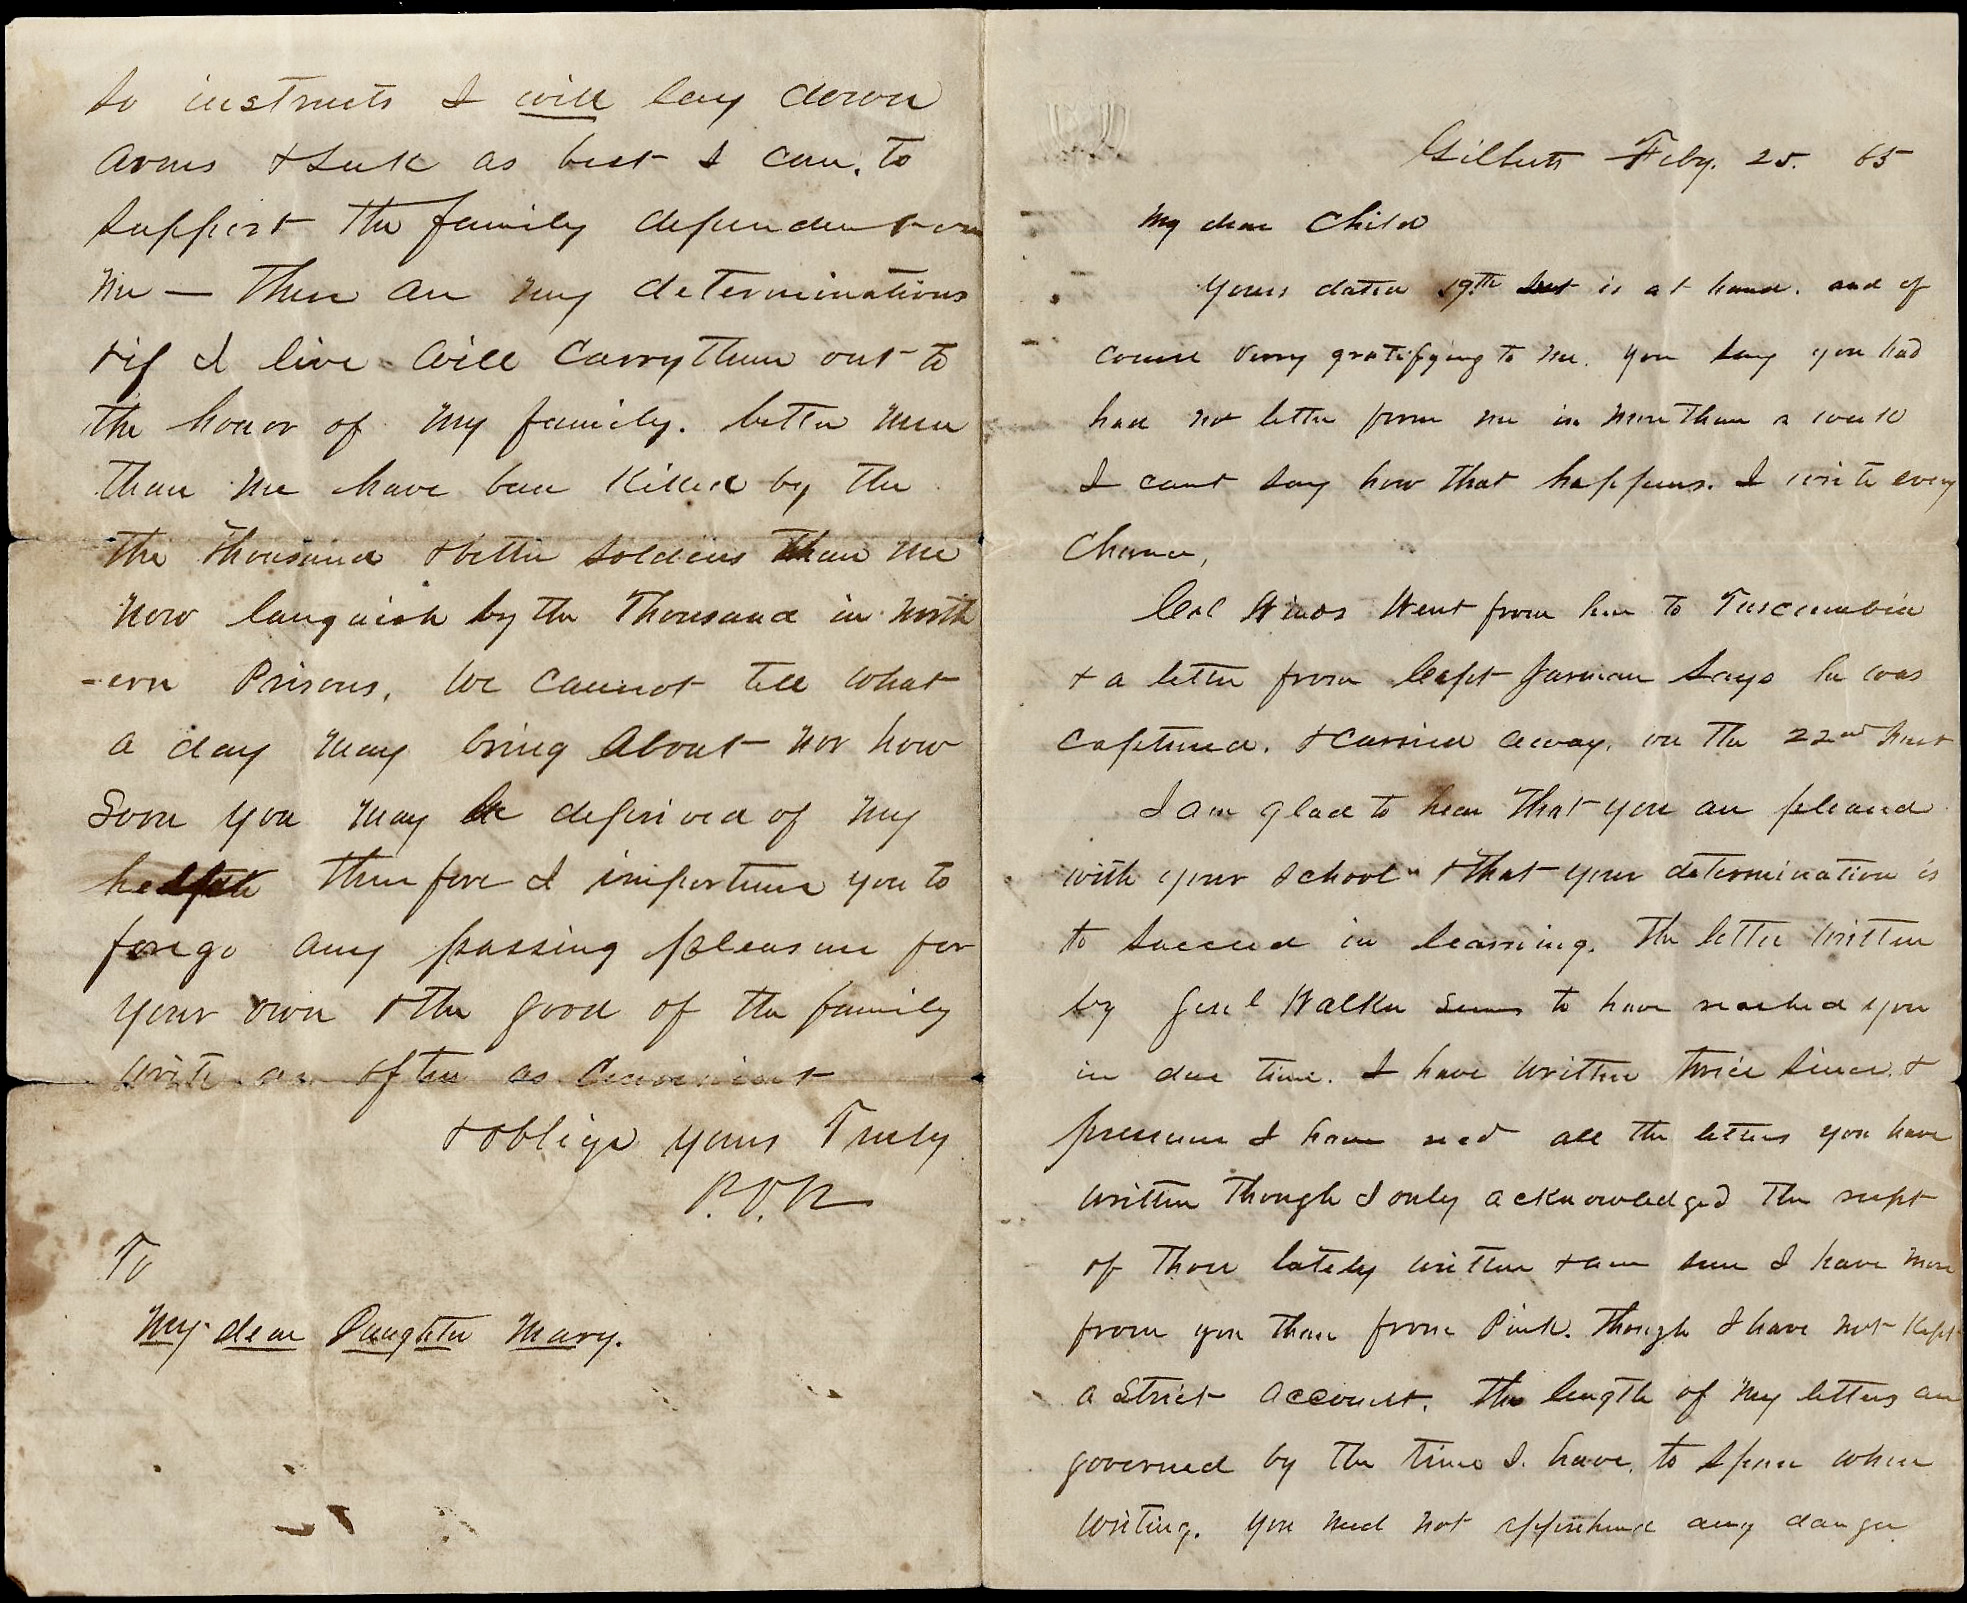 Gilberts Feby. 25. 65
My dear Child
Yours dated 19th Inst is at hand. and of
course verry gratifying to me. you say you had
had not letter from me in more than a week
I cant say how that happens. I write every
Chance,
Col Winds Went from here to Tuscumbia
& a letter from Capt Jarman says he was
captured. & carried away. on the 22nd Inst
I am glad to hear that you are pleased
with your school & that your determination is
to succeed in learning. The letter written
by Genl Walker seems to have reached you
in due time. I have written twice since. &
presume I have recd all the letters you have
written though I only acknowledged the recpt
of those lately written & am sure I have more
from you than from Pink. though I have not kept
a strict account. The length of my letters are
governed by the time I have to spare when
writing. you need not apprehend any danger
so instructs I will lay down
arms & seek as best I can, to
support the family dependent on
me — These are my determinations
& if I live will carry them out to
the honor of my family. better men
than me have been killed by the
the thousand & better soldiers than me
now languish by the Thousand in North
-ern Prisons. We cannot tell what
a day may bring about nor how
soon you may be deprived of my
therefore I importune you to
forego any passing pleasure for
your own & the good of the family
write as often as convenient
& oblige yours Truly
P.V.R
To
My dear Daughter Mary.